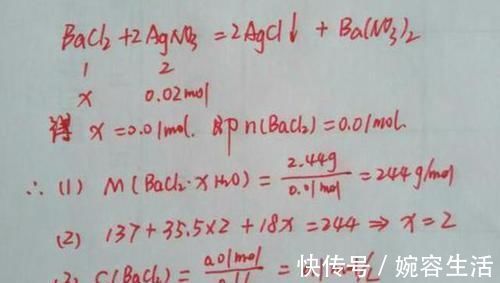 BaCl₂ + 2AgNO₃ = 2AgCl↓ + Ba(NO₃)₂
1 2
x 0.02mol
得 x = 0.01mol. 即 n(BaCl₂) = 0.01mol.
∴ (1) M(BaCl₂·xH₂O) = 2.44g/0.01mol = 244g/mol
(2) 137+35.5×2+18x=244 ⇒ x=2
C(BaCl₂) = 0.01mol
快传号／婉容生活